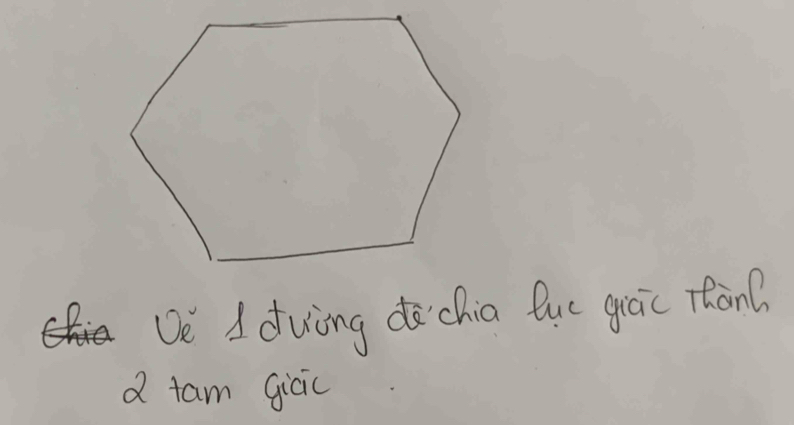 Chia Vẽ 1 đường để chia lục giác thành
2 tam giác.